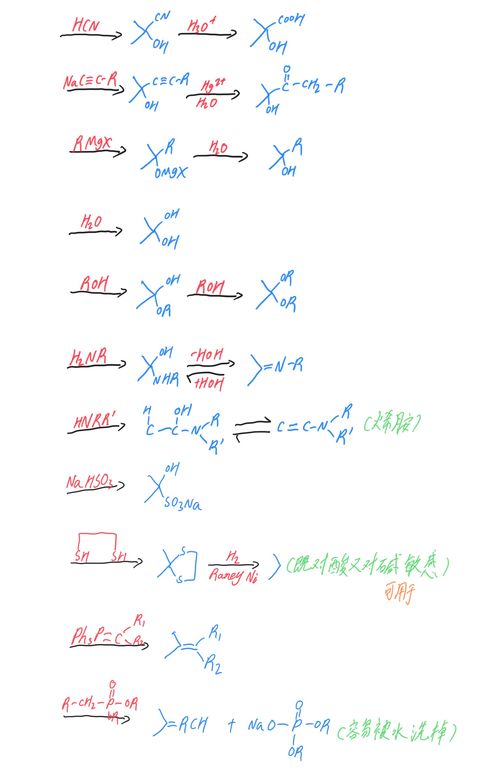 HCN CN OH H₂O⁺ COOH OH
NaC≡C-R C≡C-R OH Hg²⁺ H₂O O C-CH₂-R OH
RMgX R OMgX H₂O R OH
H₂O OH OH
ROH OH OR ROH OR OR
H₂NR OH NHR -HOH +HOH =N-R
HNRR' H OH C-C-N R R' C=C-N R R' (烯胺)
NaHSO₃ OH SO₃Na
SH SH S S H₂ Raney Ni (既对酸又对碱敏感)
可用于
Ph₃P=C R₁ R₂ R₁ R₂
R-CH₂-P-OR O OR =RCH + NaO-P-OR O OR (容易被水洗掉)